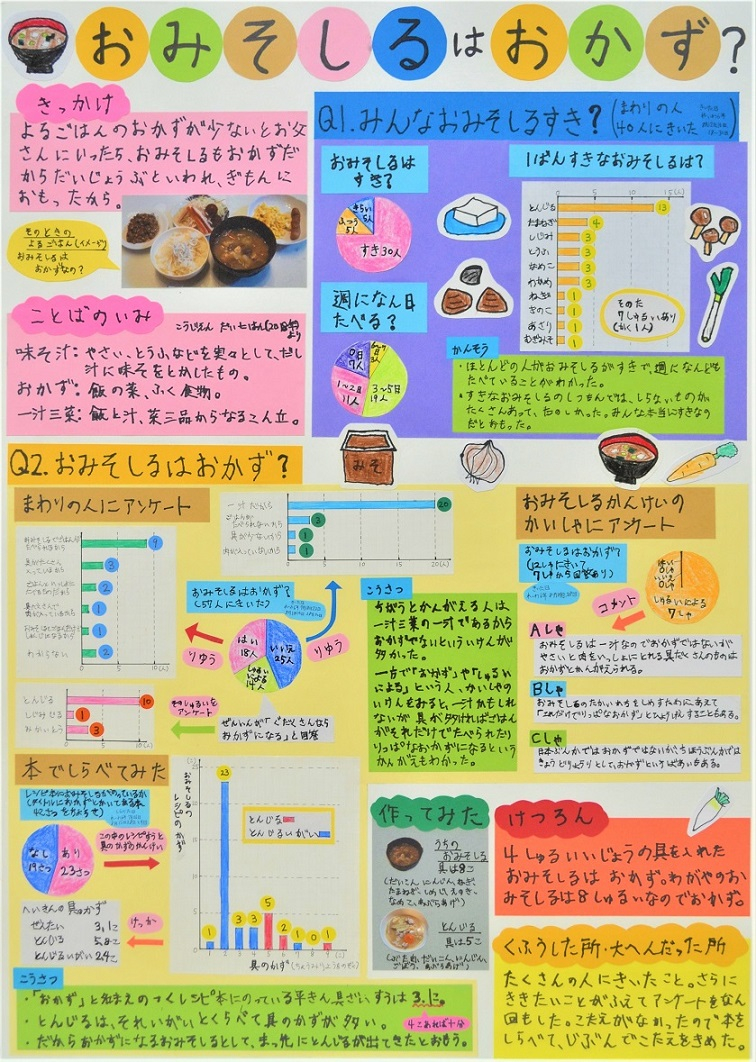 おみそしるはおかず?
きっかけ
よるごはんのおかずが少ないとお父
さんにいったら、おみそしるもおかずだ
からだいじょうぶといわれ、ぎもんに
おもったから。
そのときの
よるごはん(イメージ)
おみそしるは
おかずなの?
ことばのいみ
味そ汁:やさい、とうふなどを実々として、だし
汁に味そをとかしたもの。
おかず:飯の菜、ふく食物。
一汁三菜:飯と汁、菜三品からなるこん立。
Q1.みんなおみそしるすき?
(まわりの人
40人にきいた)
おみそしるは
すき?
きらい
5人
ふつう
5人
すき30人
週になん日
たべる?
0日
7人
3人
1~2日
11人
3~5日
19人
1ばんすきなおみそしるは?
0 5 10 15(人)
とんじる 13
たまねぎ 4
しじみ 3
とうふ 3
なめこ 3
わかめ 3
ねぎ 1
きのこ 1
あさり 1
むぎみそ 1
そのた
7しゅるいあり
(かく1人)
かんそう
・ほとんどの人がおみそしるがすきで、週になんども
たべていることがわかった。
・すきなおみそしるのしつもんでは、しらないものが
たくさんあって、たのしかった。みんな本当にすきなの
だとおもった。
みそ
Q2.おみそしるはおかず?
まわりの人にアンケート
9
3
2
1
1
わからない 2
0 5 10(人)
一汁だから 20
2
具が少ないから 1
1
0 5 10 15 20(人)
おみそしるはおかず?
(57人にきいた)
はい
18人
いいえ
25人
しゅるい
による
14人
りゆう
りゆう
とんじる 10
しじみ 1
3
0 5 10(人)
しゅるいを
アンケート
ぜんいんが「ぐだくさんなら
おかずになる」と回答
こうさつ
ちがうとかんがえる人は
一汁三菜の一汁であるから
おかずでないといういけんが
多かった。
一方で「おかず」や「しゅるい
による」という人、かいしゃの
いけんをみると、一汁かもしれ
ないが具が多ければごはん
がそれだけでたべられたり
りっぱなおかずになるという
かんがえもわかった。
おみそしるかんけいの
かいしゃにアンケート
おみそしるはおかず?
(12しゃにきいて
7しゃから回答あり)
はい
0しゃ
いいえ
0しゃ
しゅるいによる
7しゃ
コメント
Aしゃ
おみそしるは一汁なのでおかずではないが
やさいと肉をいっしょにとれる具だくさんのものは
おかずとかんがえられる。
Bしゃ
おみそしるのたかいかちをしめすためにあえて
「これだけでりっぱなおかず」とひょうげんすることもある。
Cしゃ
日本ぶんかではおかずでよないが、ちほうぶんかでは
きょうどりょうりとして、おかずというばあいもある。
本でしらべてみた
なし
19さつ
あり
23さつ
この本のレシピすうと
具のかずのかんけい
けっか
へいきんの具のかず
ぜんたい 3.1こ
とんじる 5.8こ
とんじるいがい 2.4こ
おみそしるの
レシピのかず
とんじる
とんじるいがい
1 23 3 3 5 2 1 0 1
1 2 3 4 5 6 7 8 9
具のかず
こうさつ
・「おかず」となまえのつくレシピ本にのっている平きん具ざいすうは3.1こ。
4こあれば十分
・とんじるは、それいがいとくらべて具のかずが多い。
・だからおかずになるおみそしるとして、まっ先にとんじるが出てきたとおもう。
作ってみた
うちの
おみそしる
具は8こ
とんじる
具は5こ
けつろん
4しゅるいいじょうの具を入れた
おみそしるは おかず。わがやのお
みそしるは8しゅるいなのでおかず。
くふうした所・大へんだった所
たくさんの人にきいたこと。さらに
ききたいことがふえてアンケートをなん
回もした。こたえがなかったので本を
しらべて、じぶんでこたえをきめた。